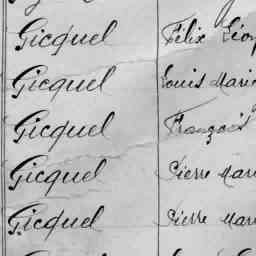 Gicquel Félix
Gicquel Louis Marie
Gicquel François
Gicquel Pierre Mari
Gicquel Pierre Mari